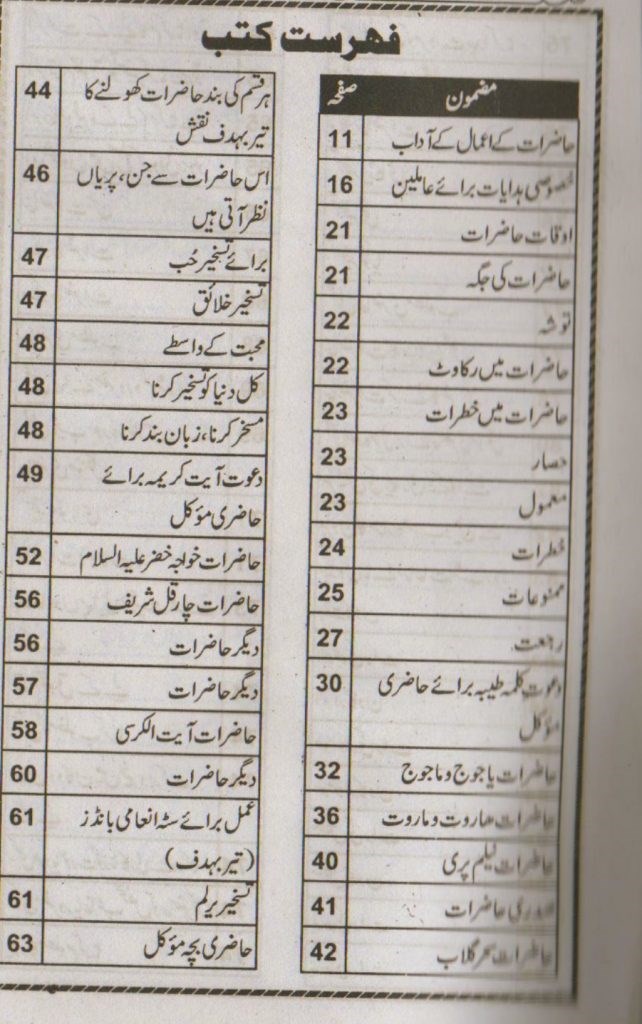 فہرست کتب
مضمون صفحہ
حاضرات کے اعمال کے آداب 11
خصوصی ہدایات برائے عاملین 16
اوقات حاضرات 21
حاضرات کی جگہ 21
توشہ 22
حاضرات میں رکاوٹ 22
حاضرات میں خطرات 23
حصار 23
معمول 23
خطرات 24
ممنوعات 25
رجعت 27
دعوت کلمہ طیبہ برائے حاضری 30
مؤکل
حاضرات یاجوج و ماجوج 32
حاضرات ھاروت و ماروت 36
حاضرات نیلم پری 40
حاضرات 41
حاضرات سحر گلاب 42
ہر قسم کی بند حاضرات کھولنے کا 44
تیر بہدف نقش
اس حاضرات سے جن، پریاں 46
نظر آتی ہیں
برائے تسخیر حُب 47
تسخیر خلائق 47
محبت کے واسطے 48
کل دنیا کو تسخیر کرنا 48
مسخر کرنا، زبان بند کرنا 48
دعوت آیت کریمہ برائے 49
حاضری مؤکل
حاضرات خواجہ خضر علیہ السلام 52
حاضرات چار قل شریف 56
دیگر حاضرات 56
دیگر حاضرات 57
حاضرات آیت الکرسی 58
دیگر حاضرات 60
عمل برائے سٹہ انعامی بانڈز 61
(تیر بہدف)
تسخیر برلم 61
حاضری بچہ مؤکل 63